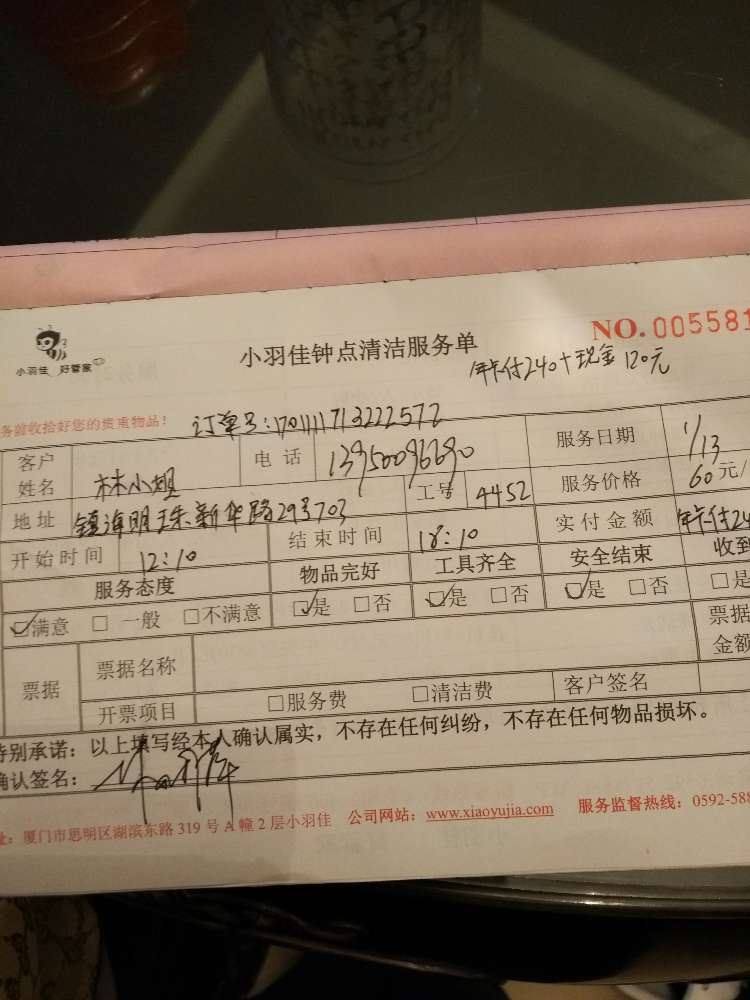 小羽佳 好管家
小羽佳钟点清洁服务单
NO.005581
年卡付240+现金120元
务前收拾好您的贵重物品！
订单号:1701111713222572
客户姓名 林小姐 电话 13950096690 服务日期 1/13
地址 镇海明珠新华路29号703 工号 4452 服务价格 60元/
开始时间 12:10 结束时间 18:10 实付金额 年卡付24
服务态度 物品完好 工具齐全 安全结束 收到
☑满意 □一般 □不满意 ☑是 □否 ☑是 □否 ☑是 □否 □是
票据 票据名称 票据金额
开票项目 □服务费 □清洁费 客户签名
特别承诺：以上填写经本人确认属实，不存在任何纠纷，不存在任何物品损坏。
确认签名：
址：厦门市思明区湖滨东路319号A幢2层小羽佳 公司网站：www.xiaoyujia.com 服务监督热线：0592-588